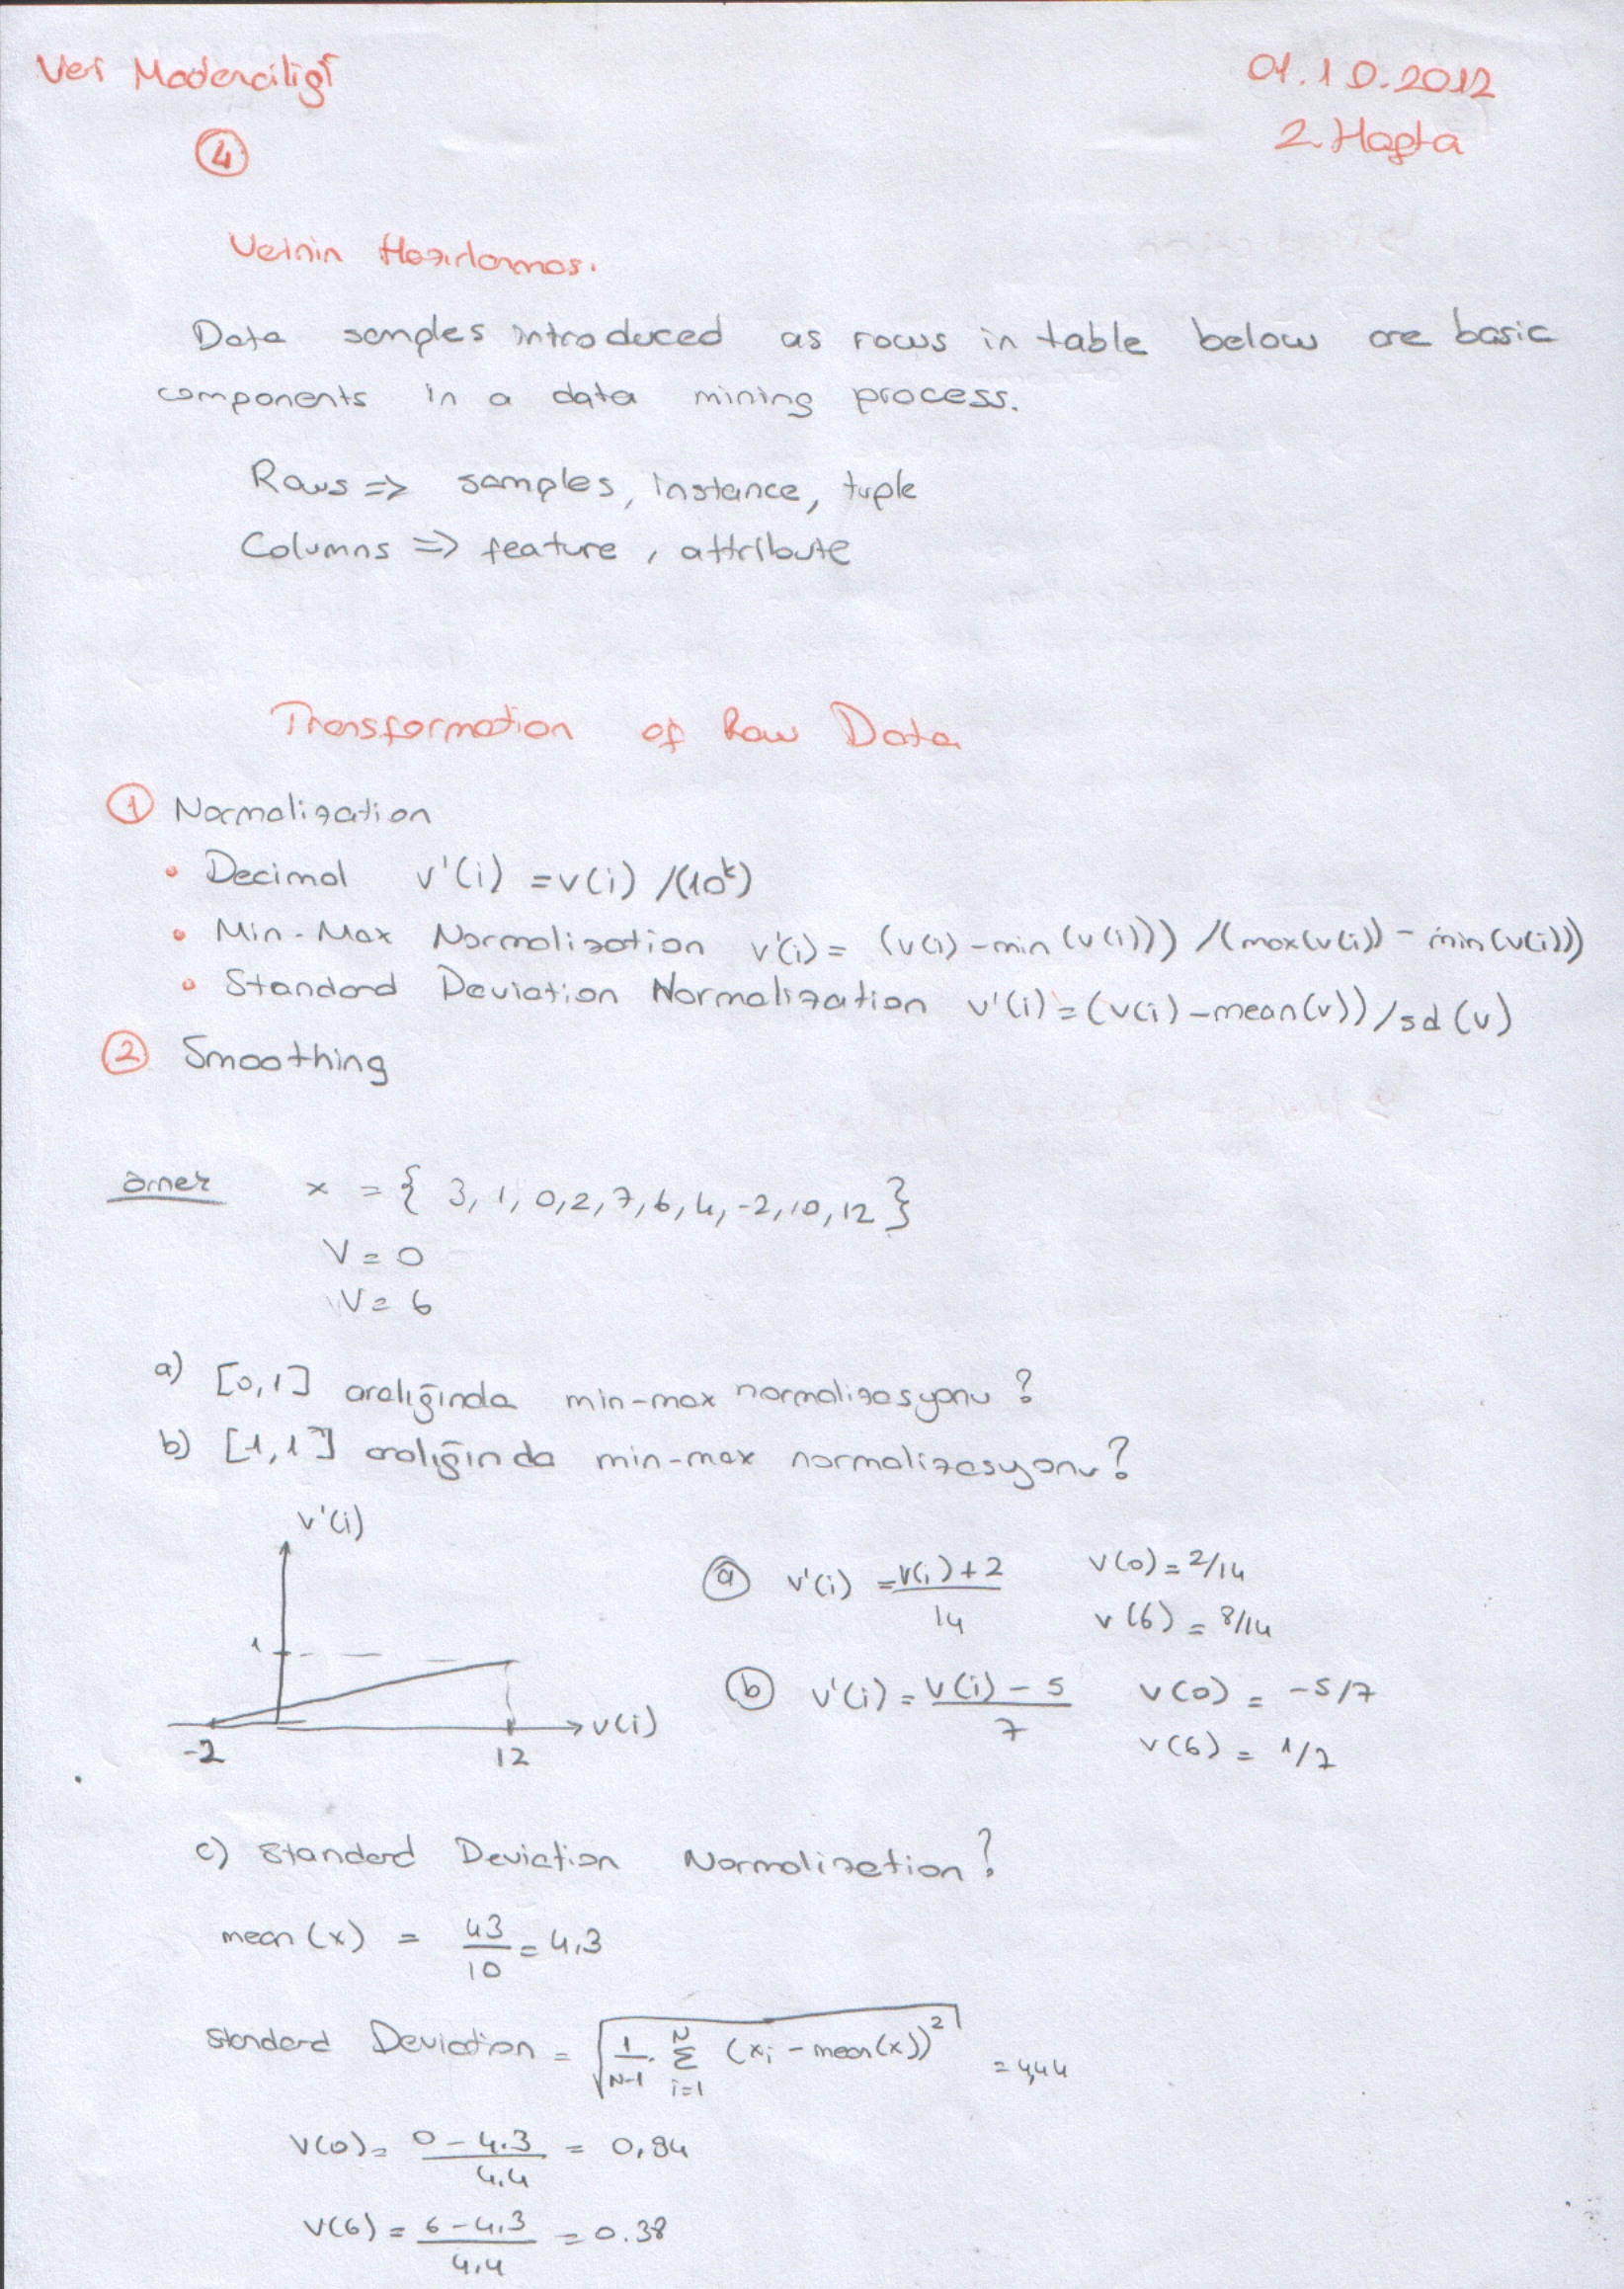 Veri Madenciliği 01.10.2012
④ 2. Hafta
Verinin Hazırlanması
Data samples introduced as rows in table below are basic
components in a data mining process.
Rows => samples, instance, tuple
Columns => feature, attribute
Transformation of Raw Data
① Normalization
• Decimal v'(i) = v(i) /(10^k)
• Min-Max Normalization v'(i) = (v(i) - min(v(i))) /(max(v(i)) - min(v(i)))
• Standard Deviation Normalization v'(i) = (v(i) - mean(v)) / sd(v)
② Smoothing
örnek x = { 3, 1, 0, 2, 7, 6, 4, -2, 10, 12 }
V = 0
V = 6
a) [0,1] aralığında min-max normalizasyonu ?
b) [-1,1] aralığında min-max normalizasyonu ?
v'(i)
1
-2 12 v(i)
ⓐ v'(i) = (v(i)+2)/14 v(0) = 2/14
v(6) = 8/14
ⓑ v'(i) = (v(i) - 5)/7 v(0) = -5/7
v(6) = 1/7
c) Standard Deviation Normalization ?
mean(x) = 43/10 = 4,3
Standard Deviation = √(1/(N-1) · Σ_{i=1}^{N} (x_i - mean(x))²) = 4,44
V(0) = (0 - 4.3)/4.4 = 0,94
V(6) = (6 - 4,3)/4,4 = 0.38